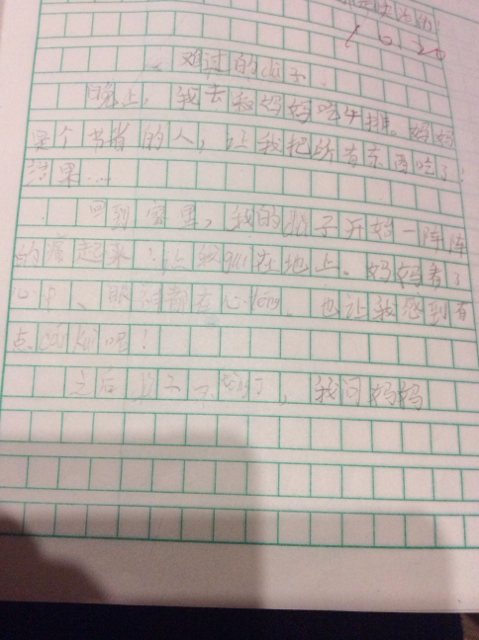 10.20
难过的dù子
晚上，我去和妈妈吃牛排。妈妈
是个节省的人，让我把所有东西吃了！
结果…
回到家里，我的肚子开始一阵阵
的痛起来！让我guì在地上、妈妈看了
心里、眼神都在心téng，也让我感到有
点cán kuì呢！
之后肚子不痛了，我问妈妈